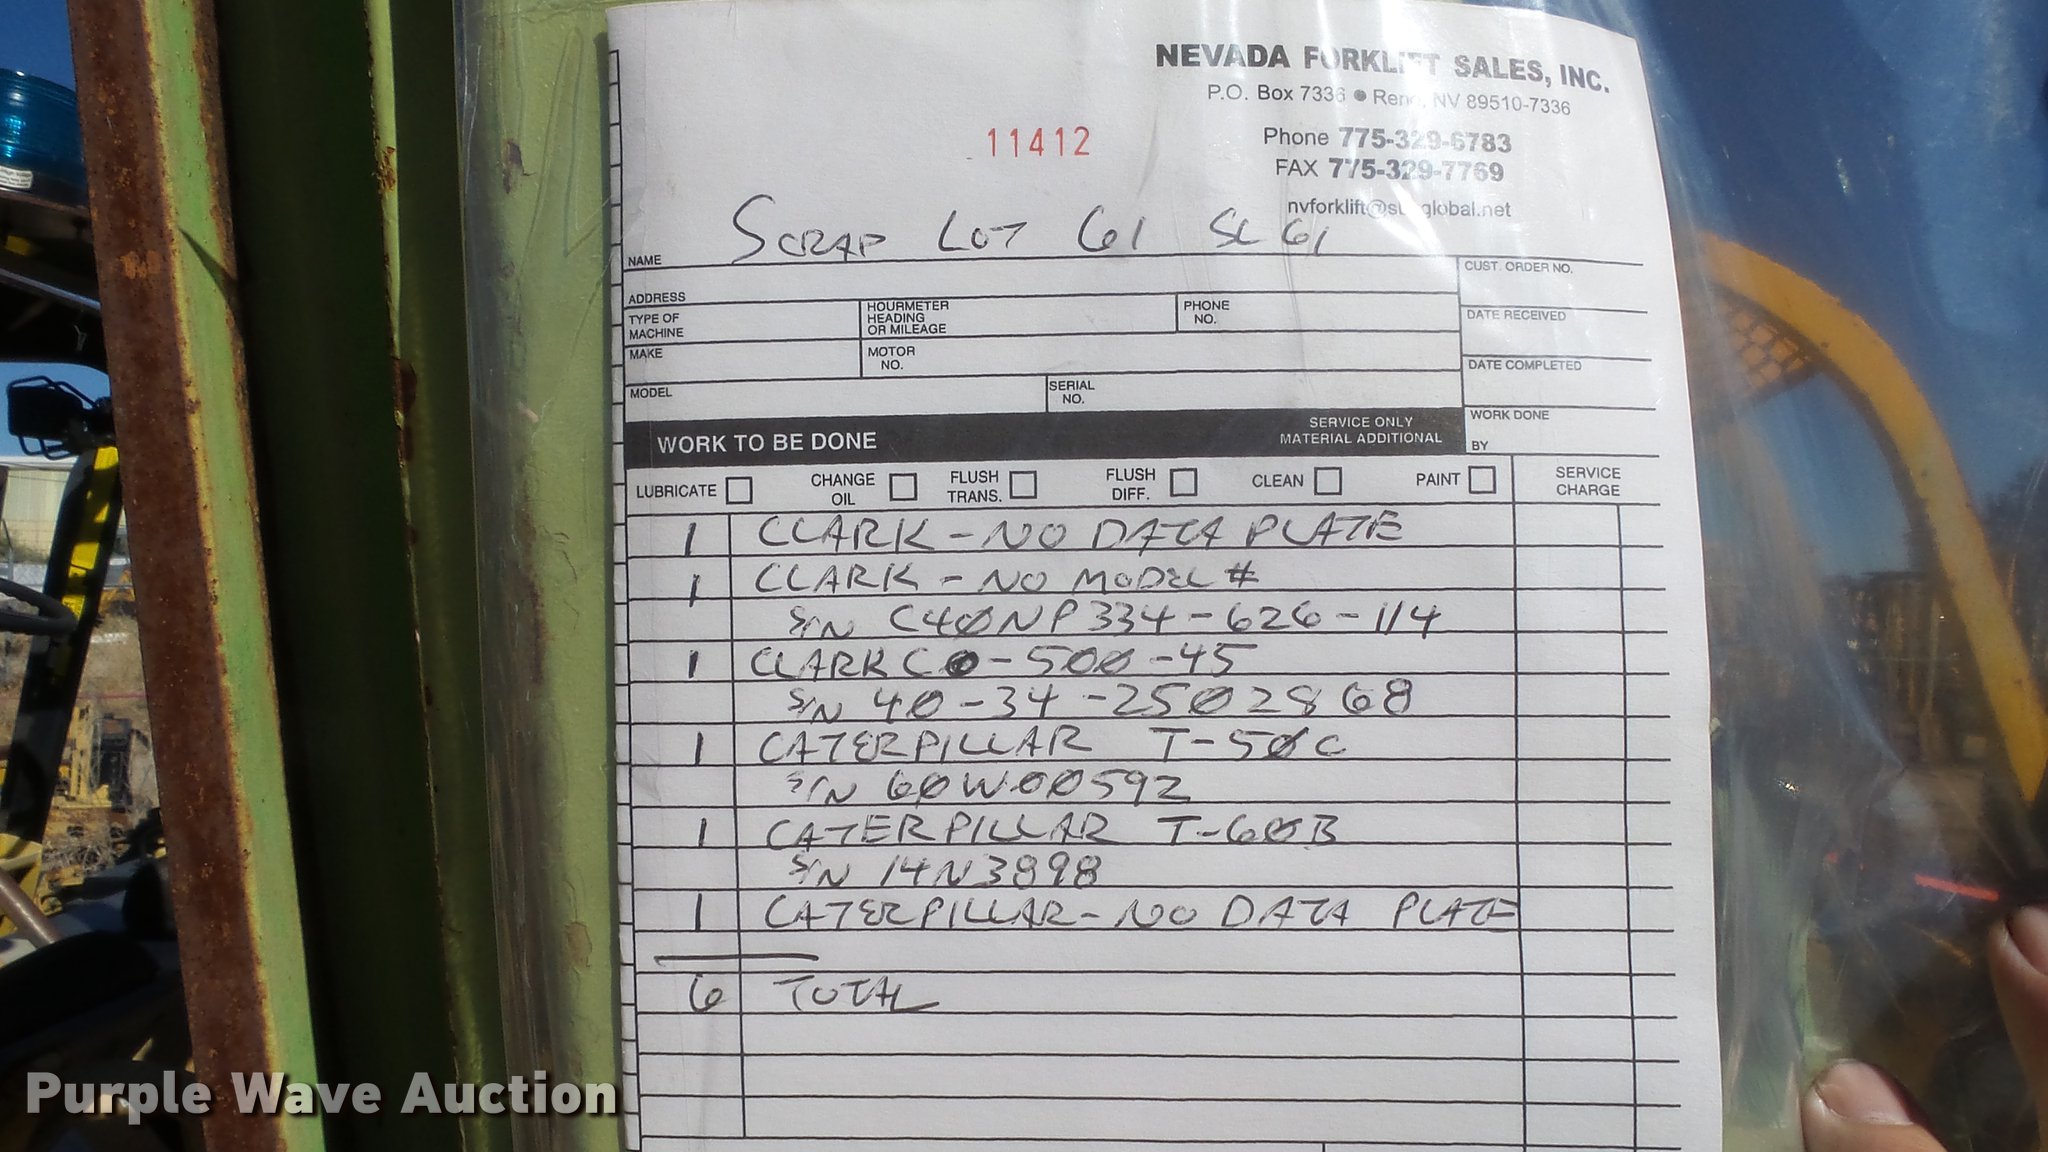 NEVADA FORKLIFT SALES, INC.
P.O. Box 7336 ● Reno, NV 89510-7336
11412
Phone 775-329-6783
FAX 775-329-7769
SCRAP LOT 61 SL 61
NAME
CUST. ORDER NO.
ADDRESS
TYPE OF MACHINE
HOURMETER HEADING OR MILEAGE
PHONE NO.
DATE RECEIVED
MAKE
MOTOR NO.
DATE COMPLETED
MODEL
SERIAL NO.
WORK DONE BY
WORK TO BE DONE
SERVICE ONLY MATERIAL ADDITIONAL
LUBRICATE CHANGE OIL FLUSH TRANS. FLUSH DIFF. CLEAN PAINT SERVICE CHARGE
1 CLARK - NO DATA PLATE
1 CLARK - NO MODEL #
S/N C40NP334-626-114
1 CLARK C0-500-45
S/N 40-34-2502868
1 CATERPILLAR T-50C
S/N 60W00592
1 CATERPILLAR T-60B
S/N 14N3898
1 CATERPILLAR - NO DATA PLATE
6 TOTAL
Purple Wave Auction